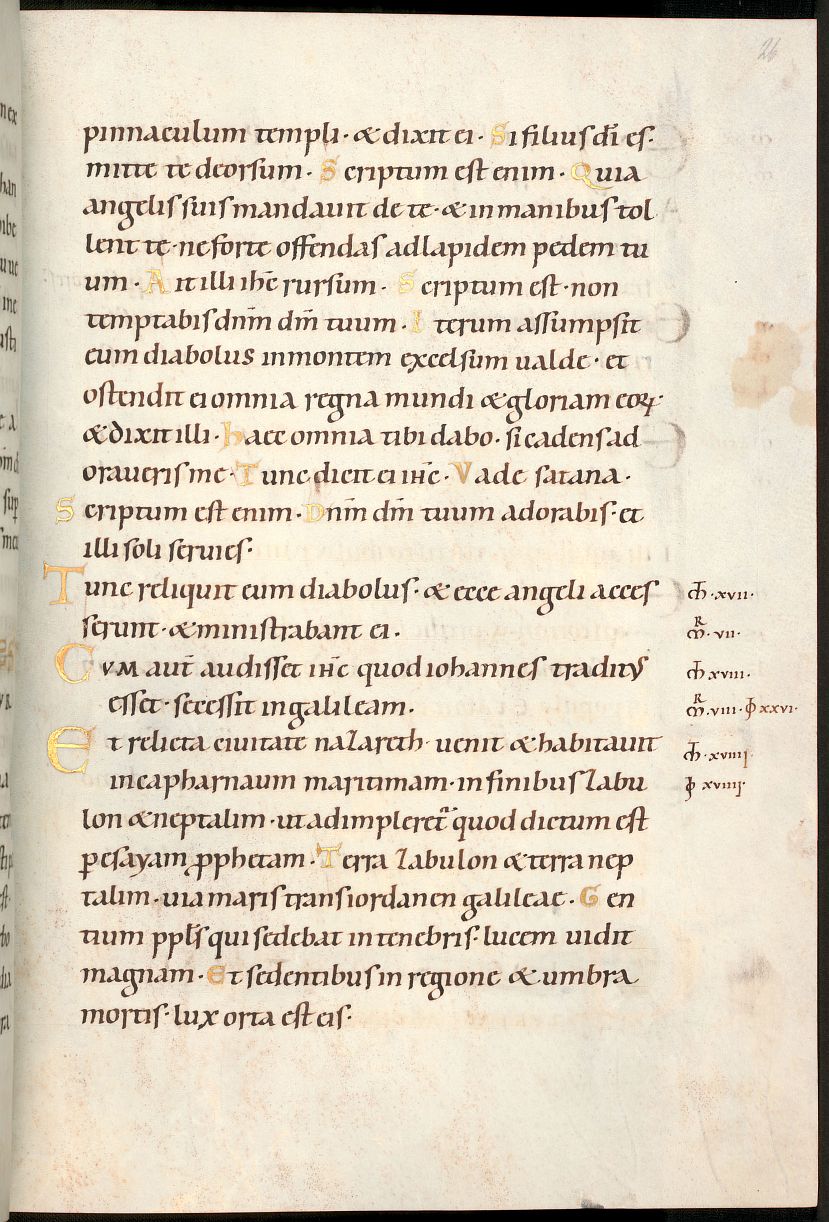 26
pinnaculum templi · & dixit ei · Si filius dī es·
mitte te deorsum · Scriptum est enim · Quia
angelis suis mandauit de te · & in manibus tol
lent te · ne forte offendas ad lapidem pedem tu
um · Ait illi ihc̄ rursum · Scriptum est · non
temptabis dnm̄ dm̄ tuum · Iterum assumpsit
eum diabolus in montem excelsum ualde · et
ostendit ei omnia regna mundi & gloriam eoꝝ·
& dixit illi · haec omnia tibi dabo · si cadens ad
oraueris me · Tunc dicit ei ihc̄ · Vade satana ·
Scriptum est enim · Dnm̄ dm̄ tuum adorabis · et
illi soli seruies ·
Tunc reliquit eum diabolus · & ecce angeli acces
serunt · & ministrabant ei ·
CVM aut̄ audisset ihc̄ quod iohannes traditus
esset · secessit in galileam ·
Et relicta ciuitate nazareth · uenit & habitauit
in capharnaum maritimam · in finibus zabu
lon & neptalim · ut adimpleret̄ quod dictum est
ꝑ esayam ꝓphetam · Terra zabulon & terra nep
talim · uia maris trans iordanen galileae · Gen
tium ppls̄ qui sedebat in tenebris · lucem uidit
magnam · Et sedentibus in regione & umbra
mortis · lux orta est eis ·
·xvii·
·vii·
xviii·
·viii· xxvi·
·xviiii·
xviiii·